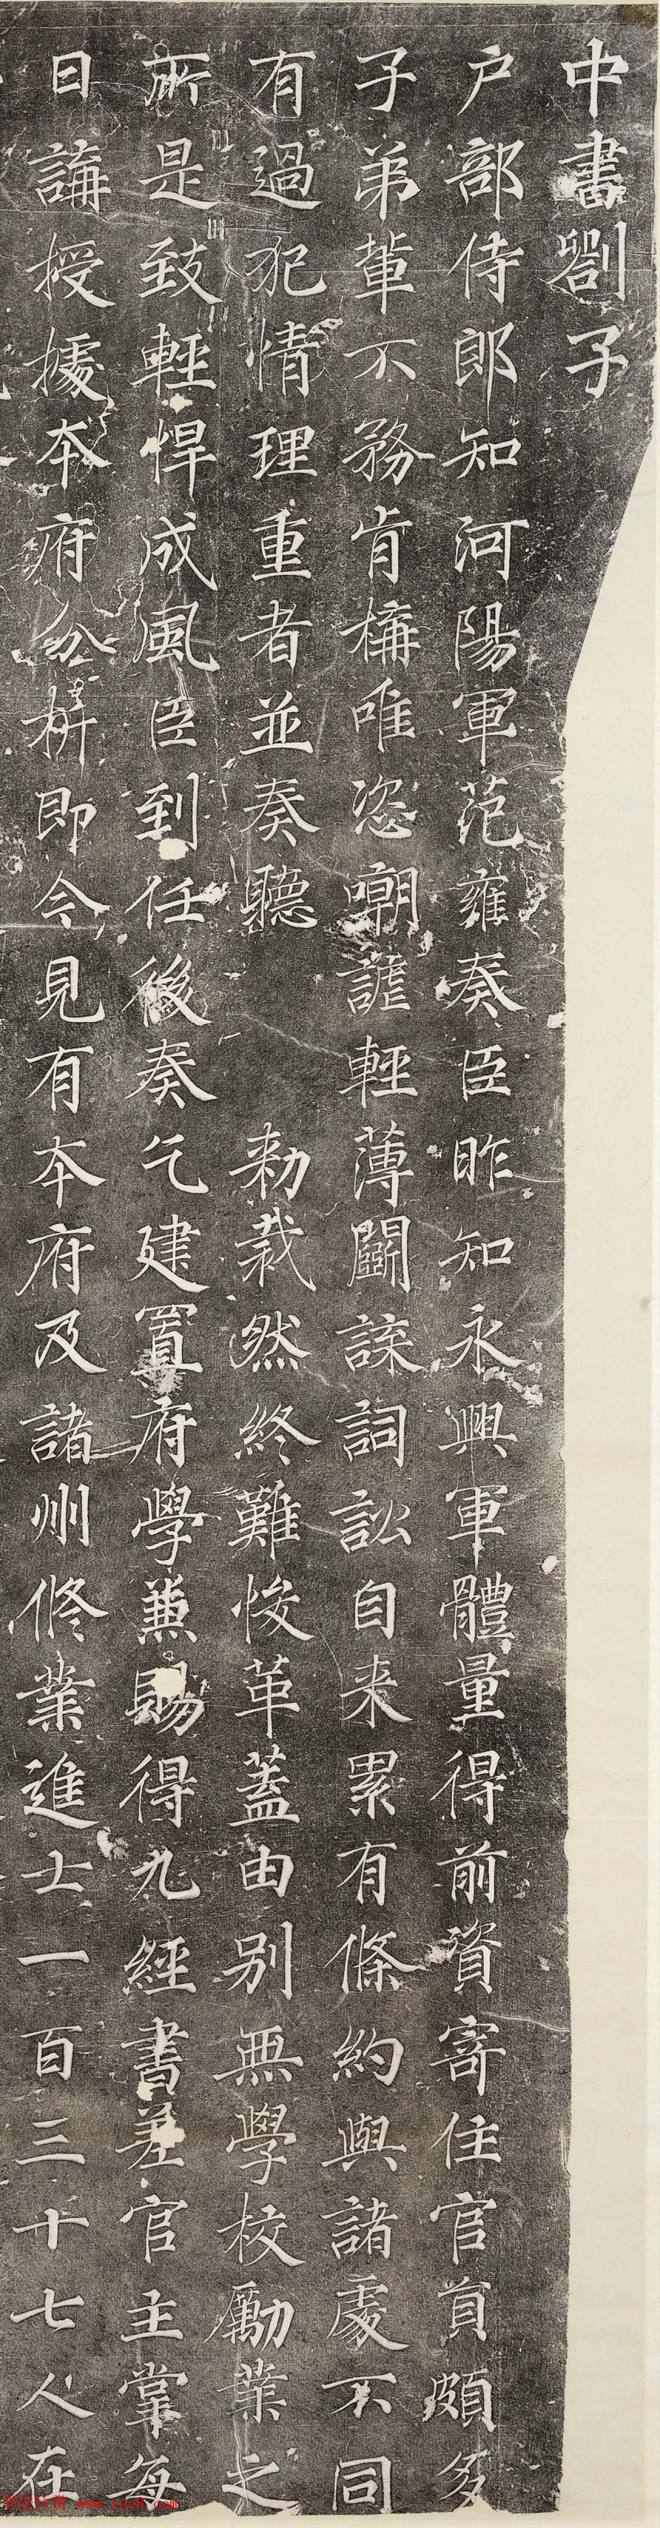 中書劄子
户部侍郎知河陽軍范雍奏臣昨知永興軍體量得前資寄住官員頗多
子弟輩不務肯構唯恣嘲謔輕薄鬭諜詞訟自来累有條約與諸處不同
有過犯情理重者並奏聽 勑裁然終難悛革蓋由别無學校勵業之
所是致輕悍成風臣到任後奏乞建置府學兼賜得九經書差官主掌每
日講授據本府分析即今見有本府及諸州修業進士一百三十七人在